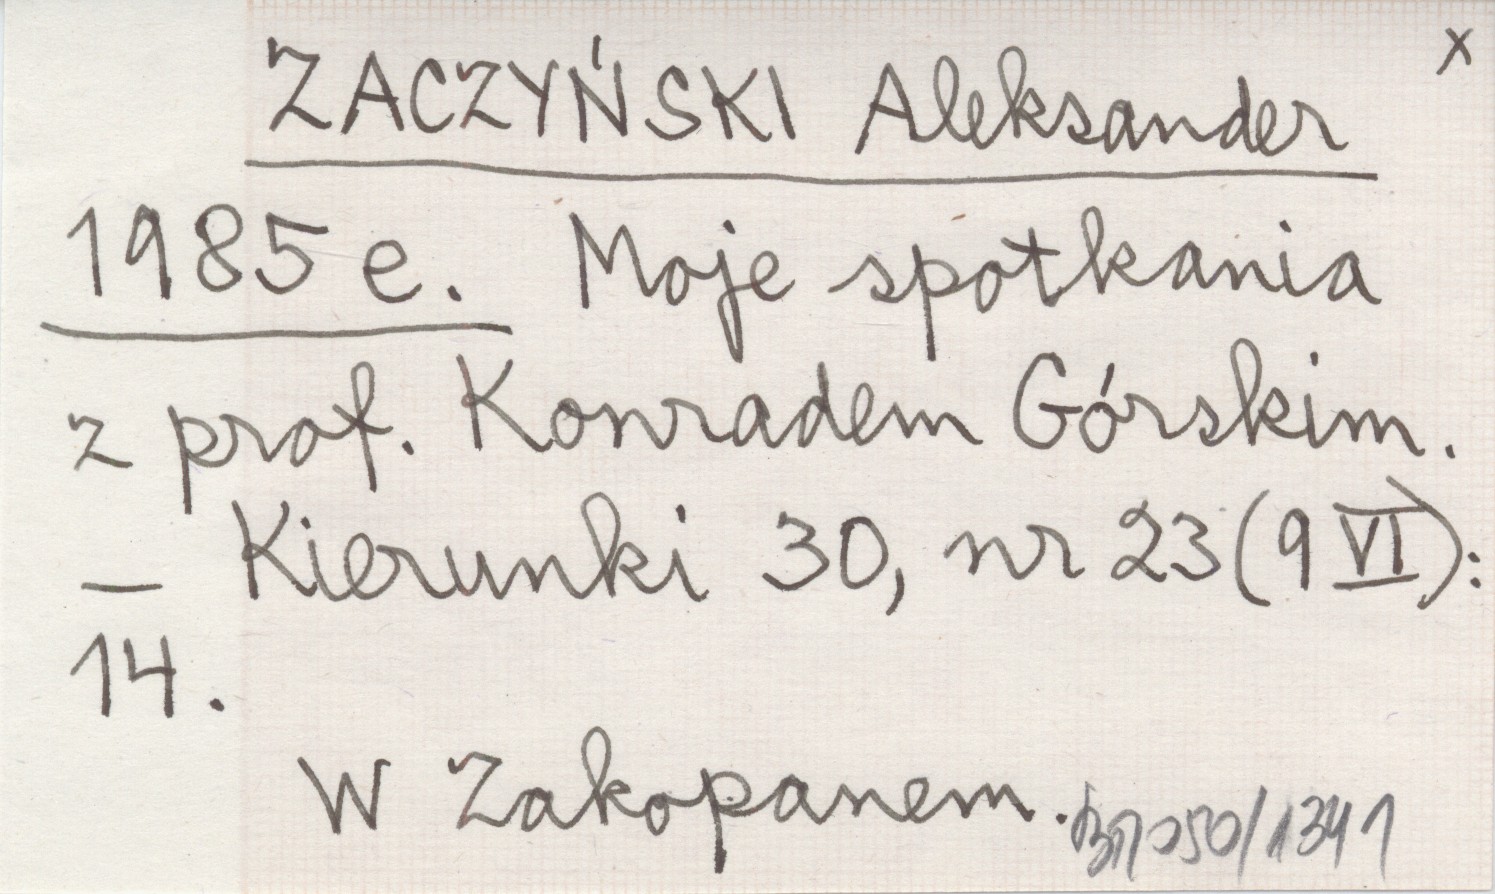 x
ZACZYŃSKI Aleksander
1985 e. Moje spotkania
z prof. Konradem Górskim.
— Kierunki 30, nr 23 (9 VI):
14.
W Zakopanem.
050/1341